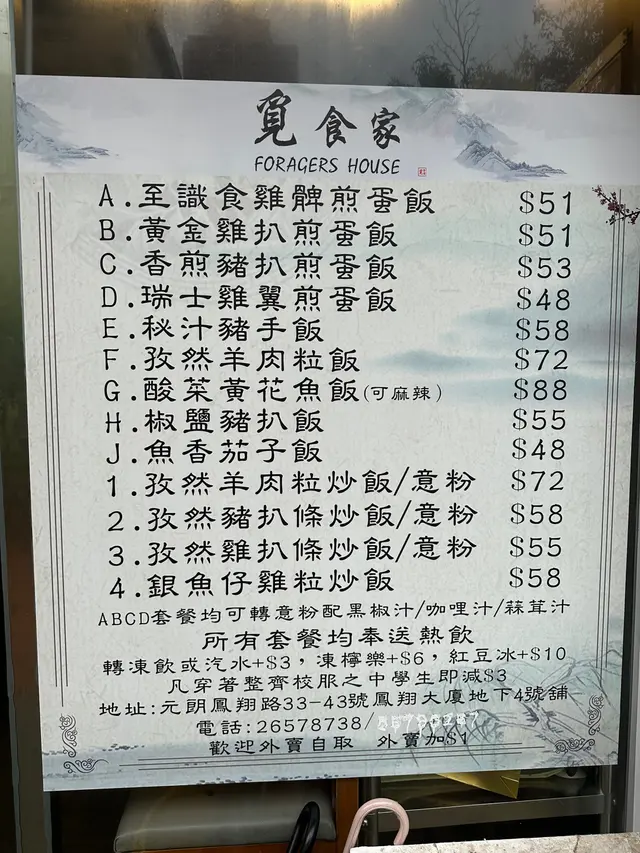 覓食家
FORAGERS HOUSE
A.至識食雞髀煎蛋飯 $51
B.黃金雞扒煎蛋飯 $51
C.香煎豬扒煎蛋飯 $53
D.瑞士雞翼煎蛋飯 $48
E.秘汁豬手飯 $58
F.孜然羊肉粒飯 $72
G.酸菜黃花魚飯(可麻辣) $88
H.椒鹽豬扒飯 $55
J.魚香茄子飯 $48
1.孜然羊肉粒炒飯/意粉 $72
2.孜然豬扒條炒飯/意粉 $58
3.孜然雞扒條炒飯/意粉 $55
4.銀魚仔雞粒炒飯 $58
ABCD套餐均可轉意粉配黑椒汁/咖哩汁/蘑茸汁
所有套餐均奉送熱飲
轉凍飲或汽水+$3，凍檸樂+$6，紅豆冰+$10
凡穿著整齊校服之中學生即減$3
地址:元朗鳳翔路33-43號鳳翔大廈地下4號舖
電話:26578738/
歡迎外賣自取 外賣加$1